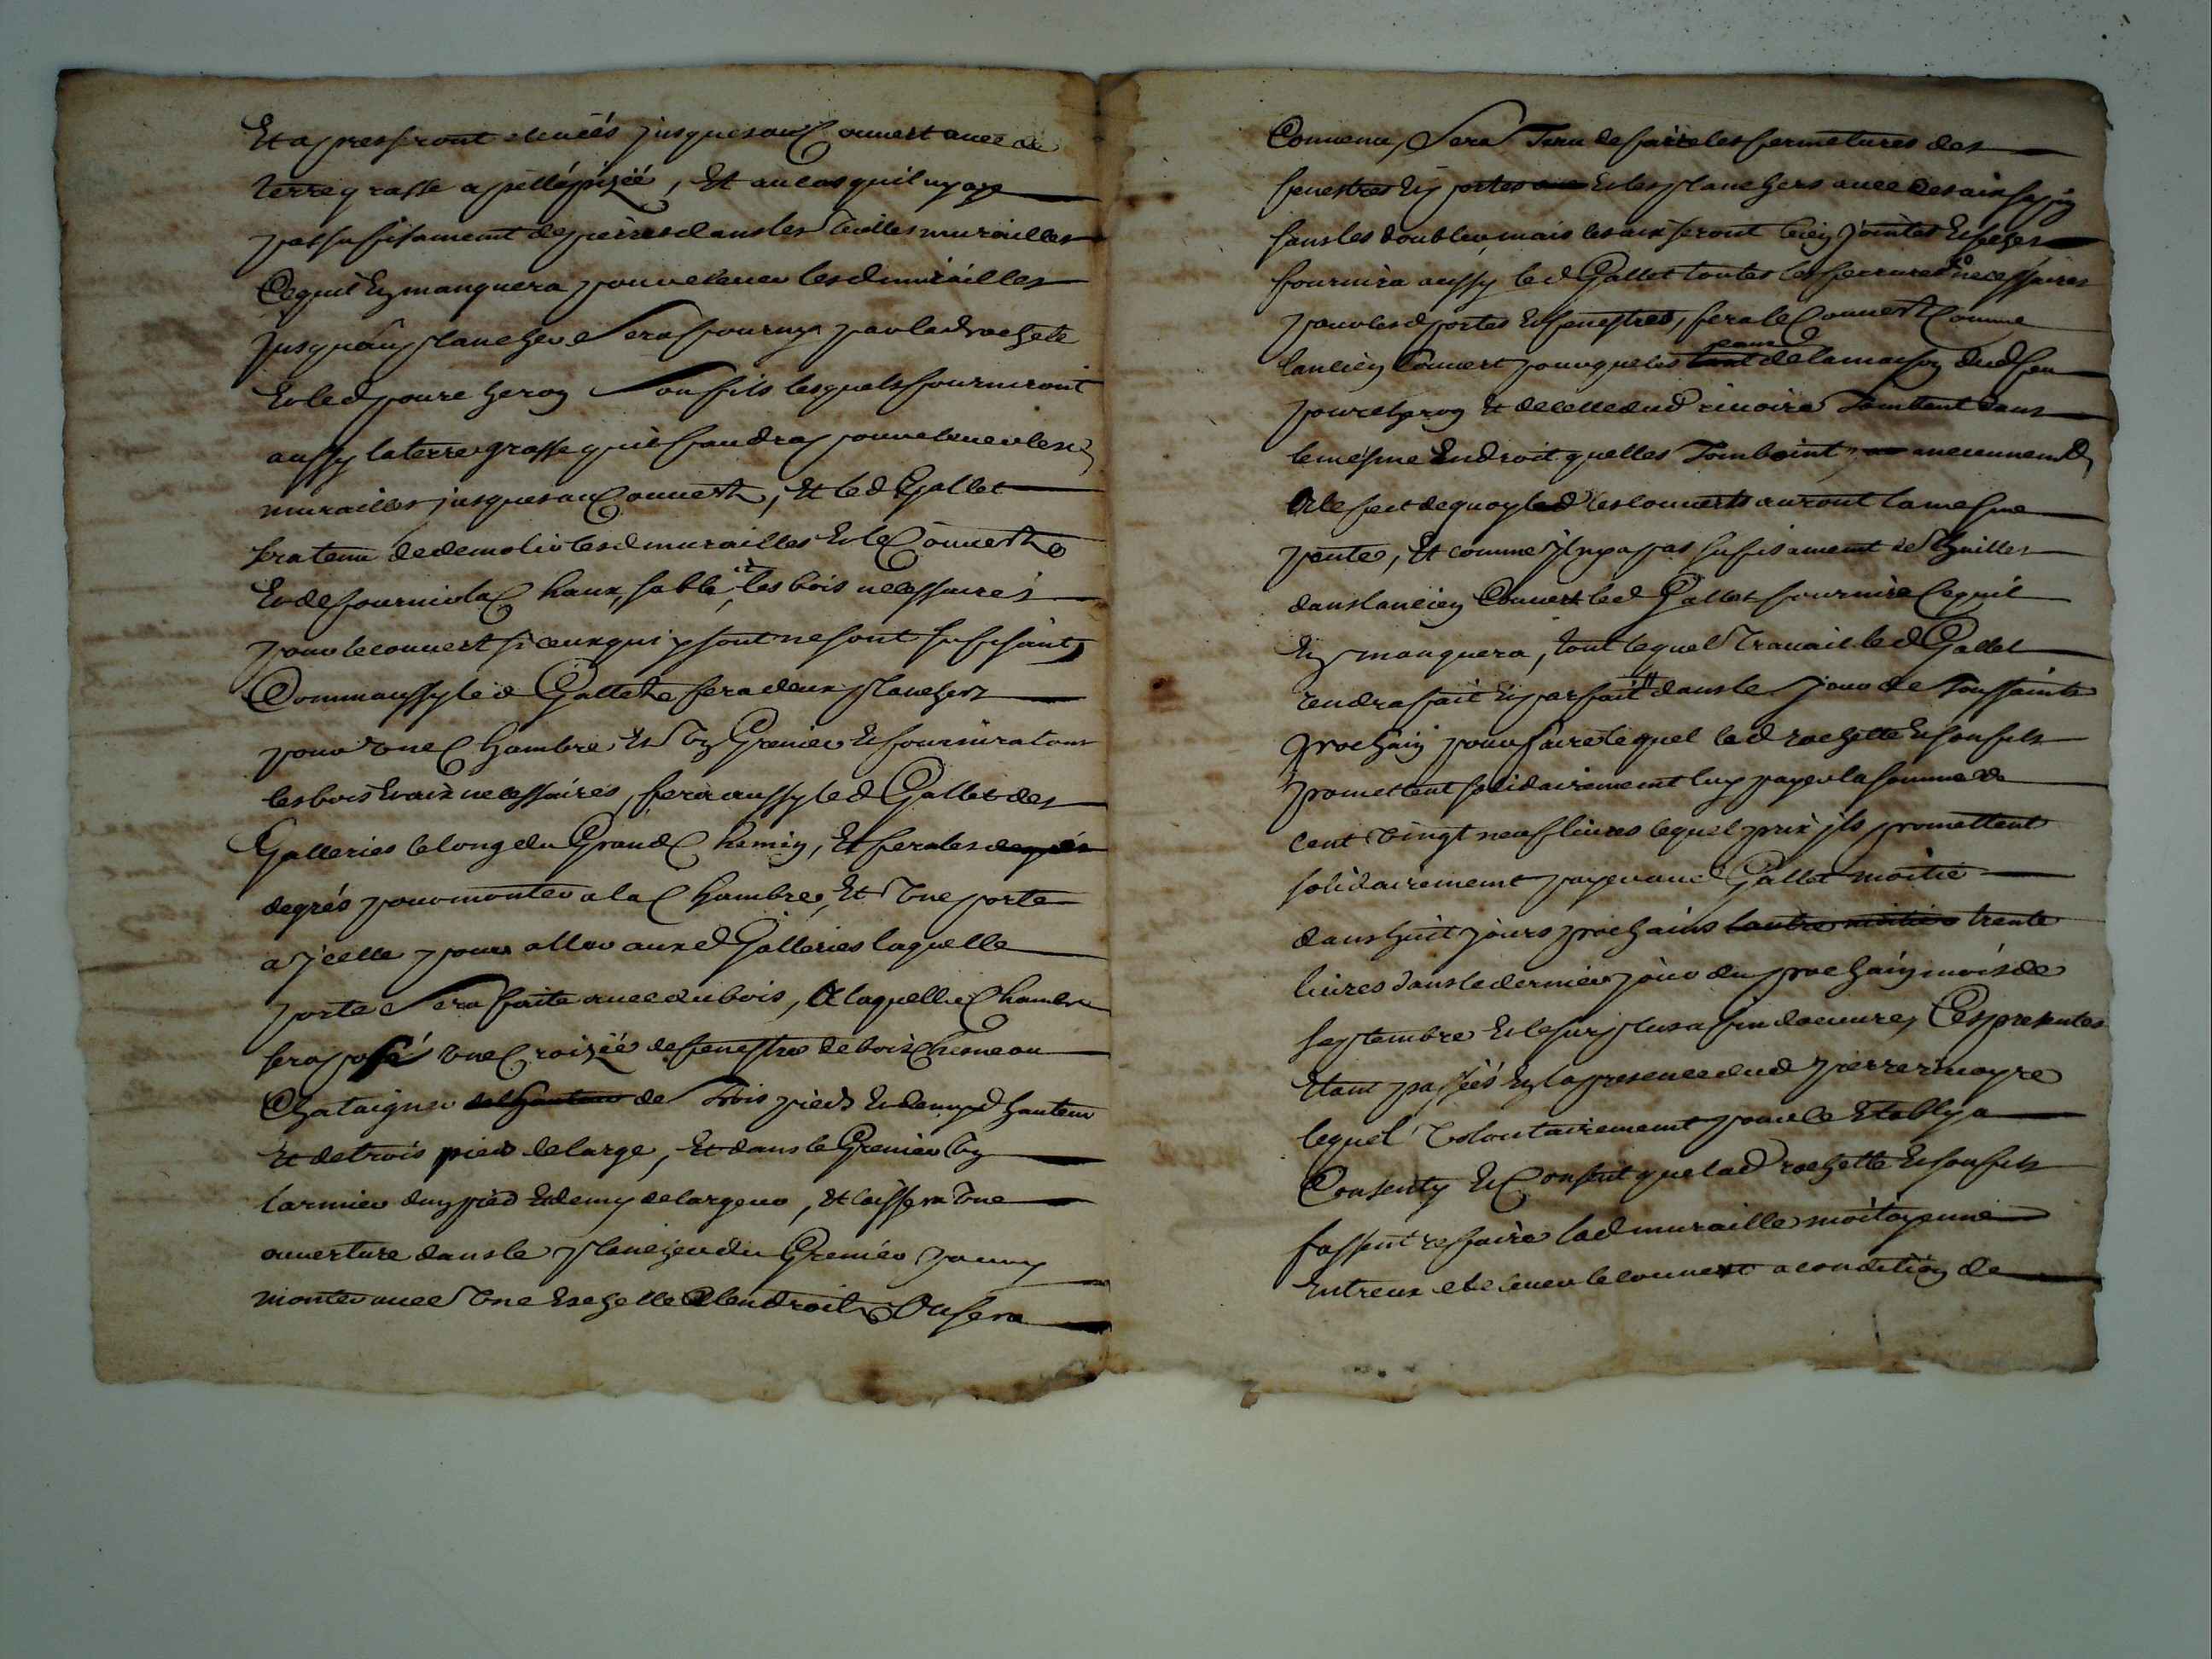 Et apres seront eleueés jusques au Couuert auec de
terre grasse apellé pizéé, Et au cas quil ny aye
pas sufisament de pierres dans les vieilles murailles
Ce quil En manquera pour eleuer lesd murailles
jusquau plancher Sera fourny par lad rochete
Et led Son fils lesquels fourniront
aussy la terre grasse quil faudra pour eleuer lesd
murailles jusques au Couuert, Et led Gallet
sera tenu de demolir lesd murailles Et le Couuert
Et de fournir la Chaux, sable, et les bois necessaires
pour le couuert si ceux qui y sont ne sont sufisants
Comm aussy led Gallet fera deux planchers
pour vne Chambre Et vn Grenier Et fournira tous
les bois Et aix necessaires, fera aussy led Gallet des
Galleries le long du Grand Chemin, Et fera les degrés
degrés pour monter a la Chambre, Et vne porte
a jcelle pour aller auxd Galleries laquelle
porte Sera faite auec du bois, A laquelle Chambre
sera posé vne Croizéé de fenestre de bois Chesne ou
Chataigner de hauteur de Trois pieds Et demy d hauteur
Et de trois pieds de large, Et dans le Grenier vn
larmier dun pied Et demy de largeur, Et laissera vne
ouuerture dans le plancher du Grenier pour y
monter auec vne Eschelle A lendroit Ou sera
Conuenu, Sera Tenu de faire les fermetures des
fenestres Et portes Et les planchers auec des aix sapin
sans les doubler, mais les aix seront bien jointes Et seches
fournira aussy led Gallet toutes les ferrures necessaires
pour lesd portes Et fenestres, fera le Couuert Comme
lancien Couuert pour que les eaux de la maison dud feu
Et de celle dud riuoire Tombent dans
le mesme Endroit quelles Tomboint,
A le fect de quoy led les couuerts auront la mesme
pente, Et comme jl ny a pas sufisament de Thuilles
dans lancien Couuert led Gallet fournira Ce quil
En manquera, tout lequel Trauail led Gallet
rendra fait Et parfait dans le jour de Toussaints
prochain pour faire lequel lad rochette Et son fils
promettent solidairement luy payer la somme de
cent vingt neuf liures lequel prix jls promettent
solidairement payer aud Gallet moitié
dans huit jours prochains lautre moitié trente
liures dans le dernier jour du prochain mois de
septembre Et le surplus a fin doeuure, Ces presentes
Etant passéés En la presence dud pierre riuoyre
lequel volontairement pour ce Etably a
Consenty Et Consent que lad rochette Et son fils
fassent refaire lad muraille moitoyenne
Entreux et eleuer le couuert a condition de